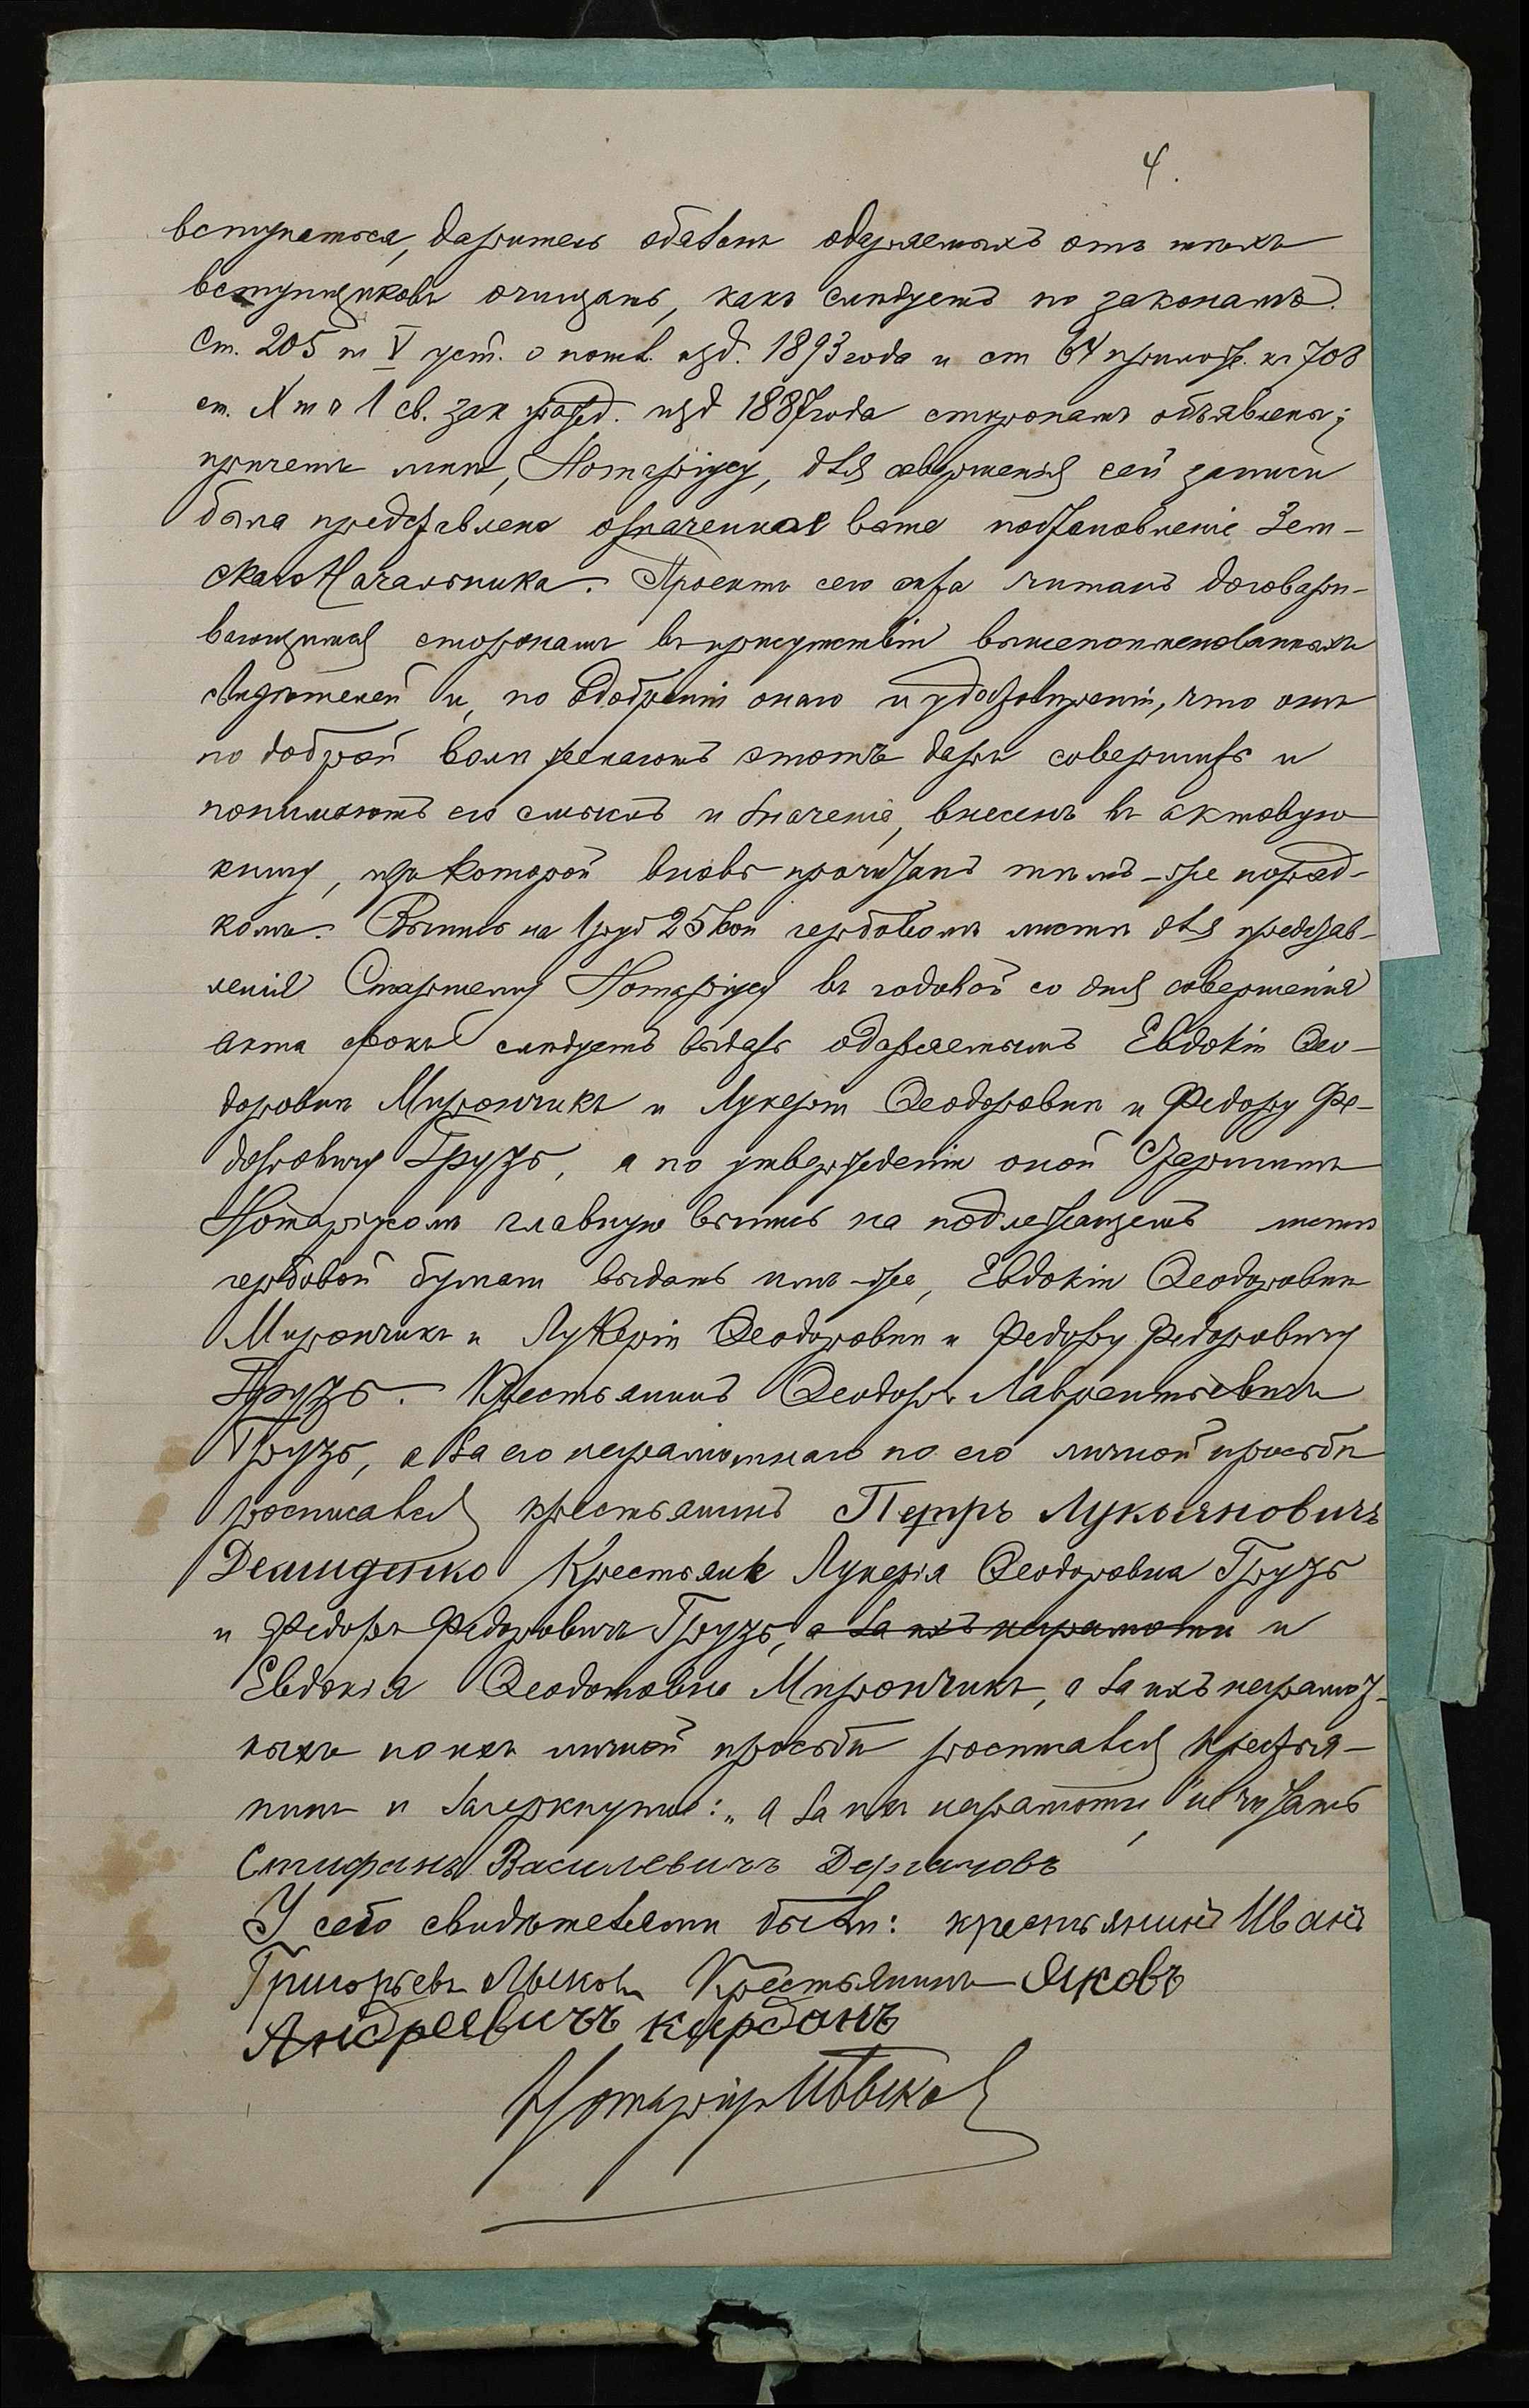 4.
вступаться, даритель обязанъ одаряемыхъ отъ тѣхъ
вступщиковъ очищать, какъ слѣдуетъ по законамъ.
Ст. 205 т V уст. о пошл. изд. 1893 года и ст 64 прилож. къ 708
ст. X т ч 1 св. зак гражд. изд 1887 года сторонамъ объявлены;
причемъ мнѣ, Нотаріусу, для совершенія сей записи
было представлено означенное выше постановленіе Зем-
скаго Начальника. Проектъ сего акта читанъ договари-
вающимся сторонамъ въ присутствіи вышепоименованныхъ
свидѣтелей и, по одобреніи онаго и удостовѣреніи, что они
по доброй волѣ желаютъ этотъ даръ совершить и
понимаютъ его смыслъ и значеніе, внесенъ въ актовую
книгу, изъ которой вновь прочитанъ тѣмъ-же поряд-
комъ. Выпись на 1 руб 25 коп гербовомъ листѣ для представ-
ленія Старшему Нотаріусу въ годовой со дня совершенія
акта срокъ слѣдуетъ выдать одаряемымъ Евдокіи Ѳео-
доровнѣ Мирончикъ и Лукеріи Ѳеодоровнѣ и Федору Фе-
доровичу Грузъ, а по утвержденіи оной Старшимъ
Нотаріусомъ главную выпись на подлежащемъ листѣ
гербовой бумаги выдать имъ-же, Евдокіи Ѳеодоровнѣ
Мирончикъ и Лукеріи Ѳеодоровнѣ и Федору Федоровичу
Грузъ. Крестьянинъ Ѳеодоръ Лаврентьевичъ
Грузъ, а за его неграмотнаго по его личной просьбѣ
росписался крестьянинъ Петръ Лукьяновичъ
Демиденко Крестьяне Лукерія Ѳеодоровна Грузъ
и Федоръ Федоровичъ Грузъ, а за ихъ неграмотн и
Евдокія Ѳеодоровна Мирончикъ, а за ихъ неграмот-
ныхъ по ихъ личной просьбѣ росписался крестья-
нинъ и зачеркнутое: „а за ихъ неграмотн" не читать
Стифанъ Василевичъ Дергачовъ
У сего свидѣтелями были: крестьянинъ Иванъ
Григорьевъ Крестьянинъ Яковъ
Андреевичъ
Нотаріусъ